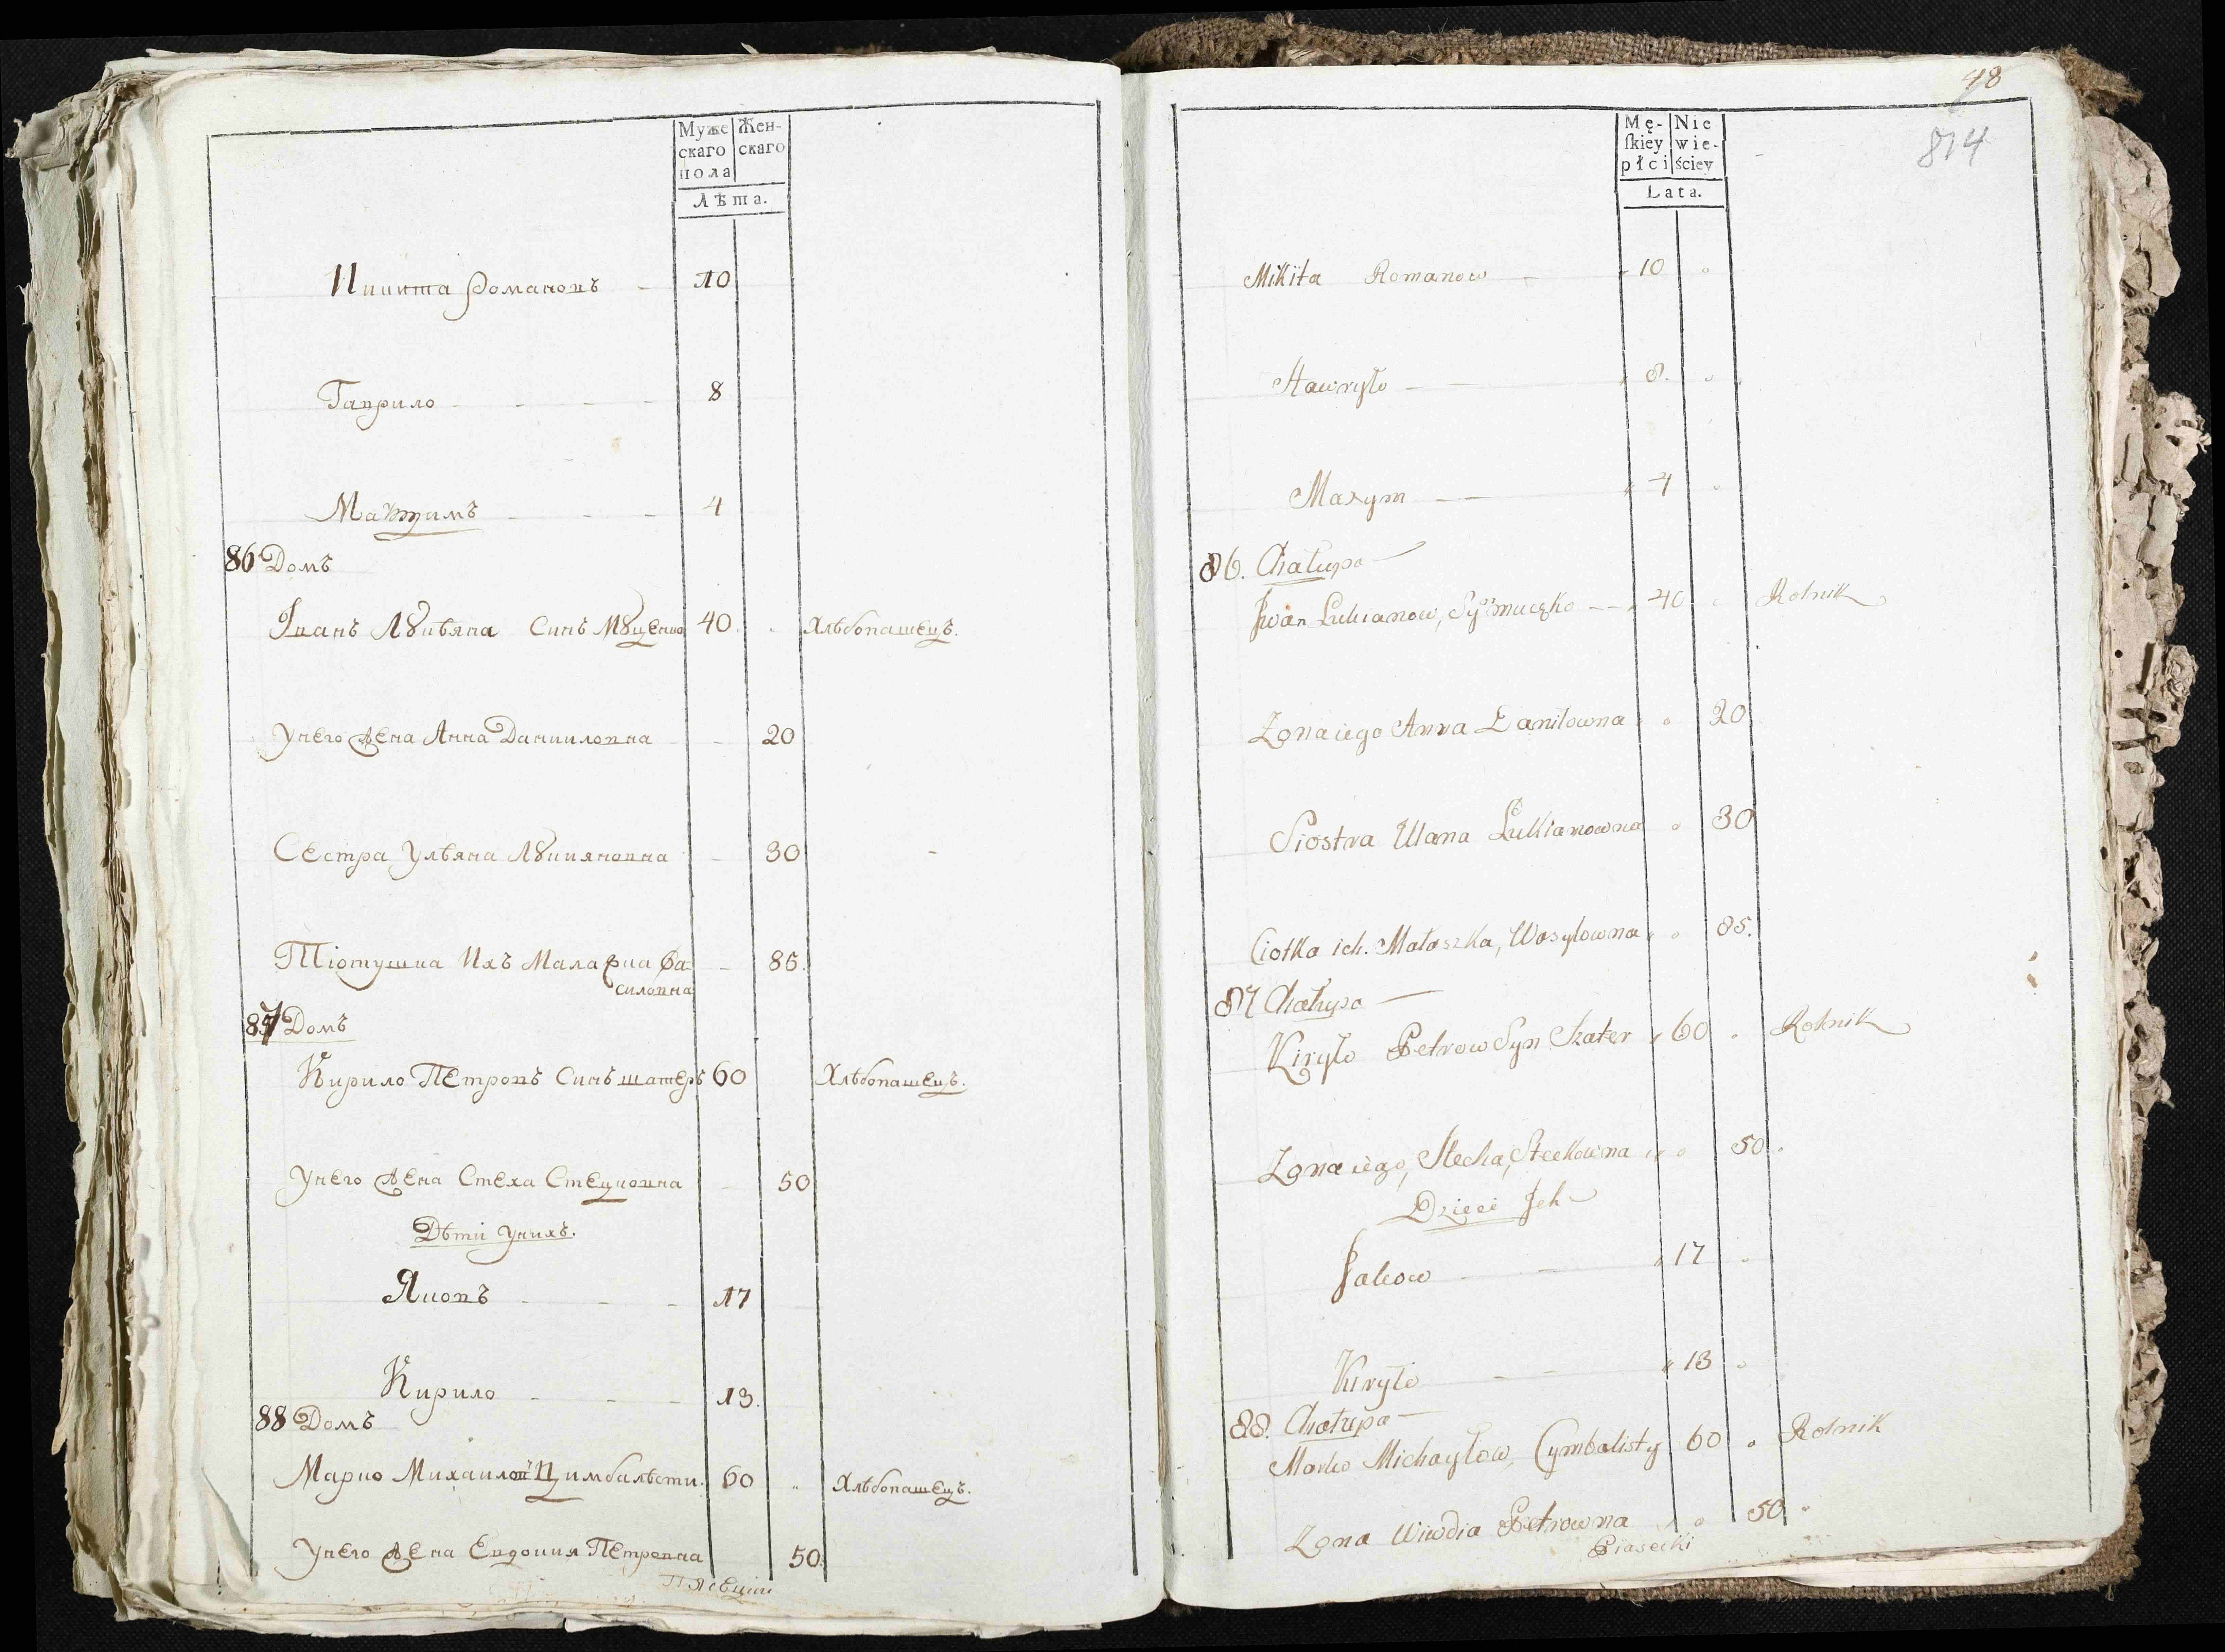 Муже Жен-
скаго скаго
пола
Лѣта.
Никита Романовъ 10
Гаврило 8
Ма𝼈имъ 4
86 Домъ
Іванъ Лꙋкѣяна Синъ Мꙋценко 40 Хлѣбопашецъ.
Унего Жена Анна Даниилопна 20
Сестра Улѣяна Лꙋкияновна 30
Тіотушка Ихъ Малашка Ва- 85.
силовна
87 Домъ
Кирило Петровъ Синъ шатеръ 60 Хлѣбопашецъ.
Унего Жена Стеха Стецковна 50
Дѣти Унихъ.
Яковъ 17
Кирило 13.
88 Домъ
Марко Михаиловъ Цимбалѣсти. 60 Хлѣбопашецъ.
Унего Жена Евдокия Петровна 50.
Пясецкіи
48
814
Mę- Nie
ſkiey wie-
płci ściey
Lata.
Mikita Romanow 10
Hawryło 8.
Maxym 4
86. Chałupa
Iwan Lukianow, Syn 40 Rolnik
Zona iego Anna Daniłowna 20
Siostra Ulana Lukianowna 30
Ciotka ich. Małaszka, Wasylowna 85.
87 Chałupa
Kiryło Petrow Syn Szater 60 Rolnik
Zona iego, Stecha, Steckowna 50
Dzieci Ich
Jakow 17
Kiryło 13
88. Chałupa
Marko Michayłow, Cymbalisty 60 Rolnik
Zona Wiwdia Petrowna 50
Piasecki